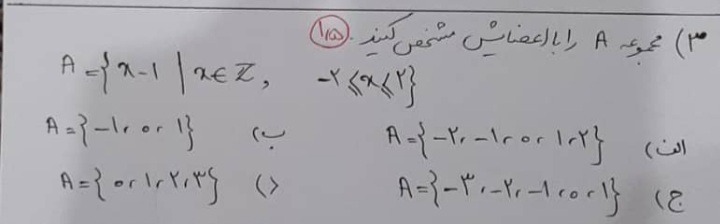 ۳) مجموعه A را با اعضایش مشخص کنید. ۱,۵
A = {x-1 | x∈Z, -۲≤x≤۲}
الف) A={-۲، -۱، ۰، ۱، ۲} ب) A={-۱، ۰، ۱}
ج) A={-۳، -۲، -۱، ۰، ۱} د) A={۰، ۱، ۲، ۳}